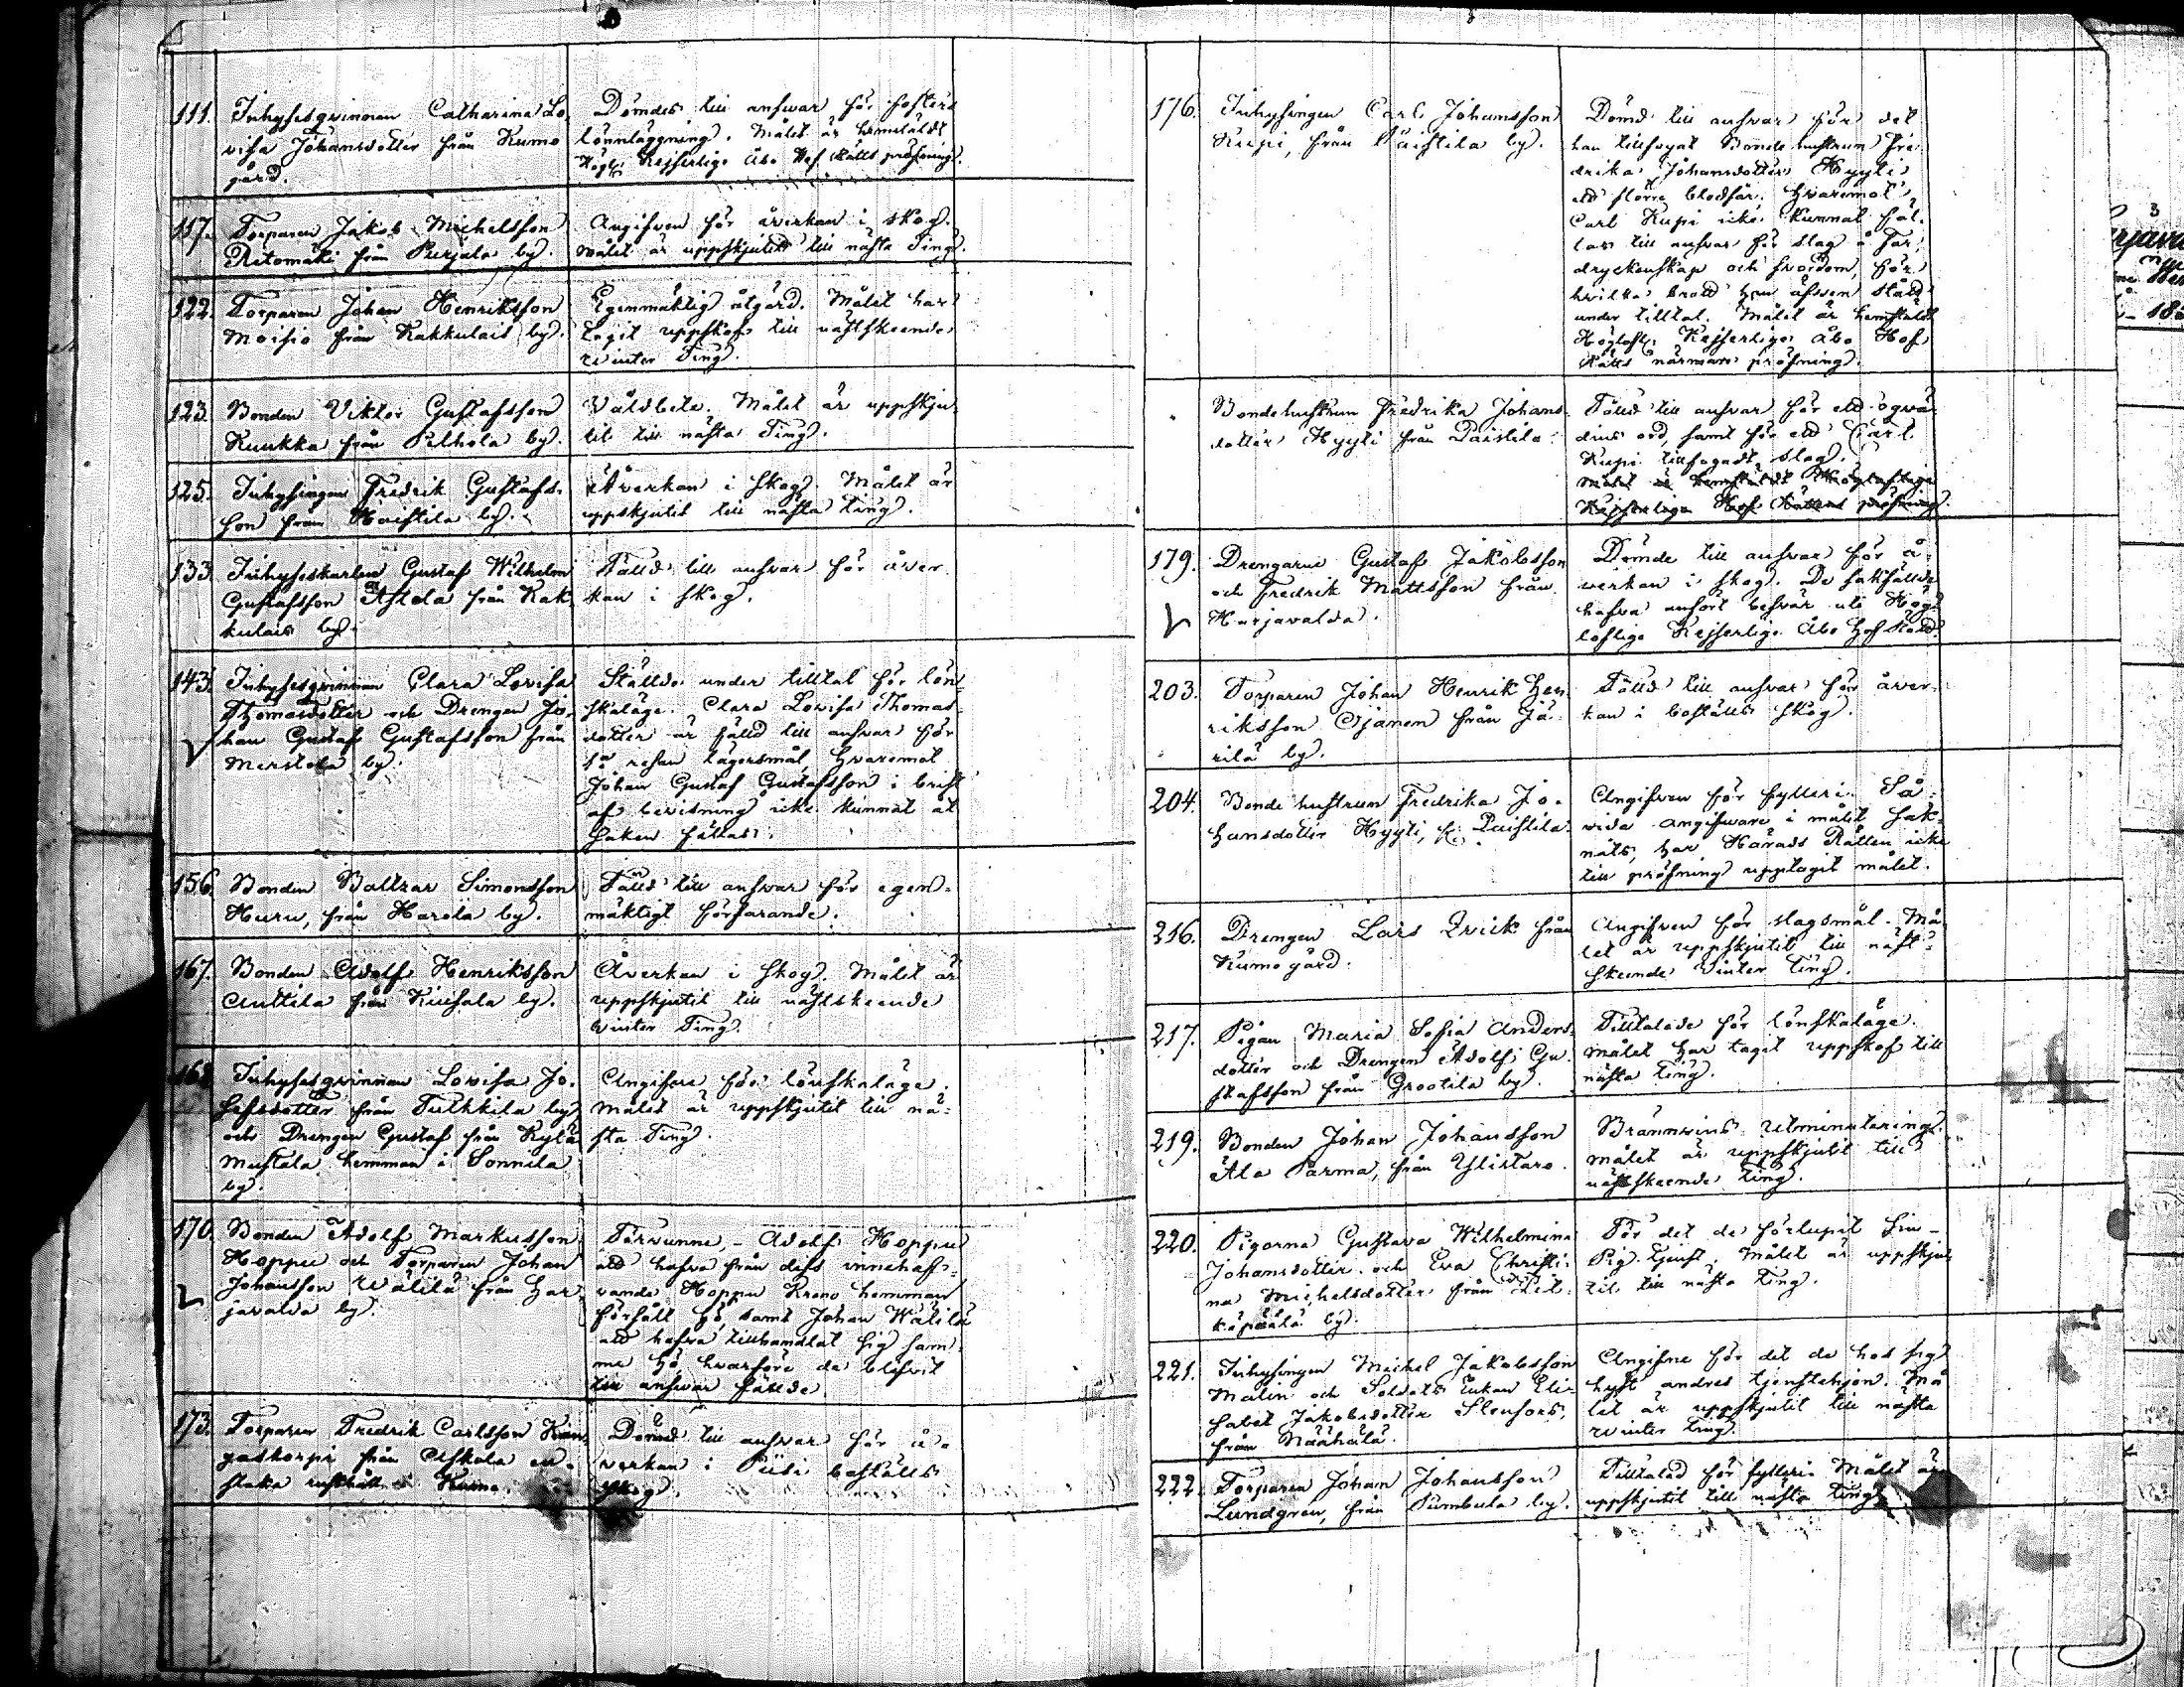 111. Inhysesqvinnan Catharina Lo-
visa Johansdotter från Kumo
gård.
Dömdes till answar för fosters
lönnläggning. Målet är hemstäldt
Högl. Kejserlige Åbo Hof Rätts pröfning.
117. Torparen Jakob Michelsson
Ritomäki från Purjala by.
Angifven för åverkan i skog.
målet är uppskjutit till nästa Ting.
122. Torparen Johan Henriksson
Moisio från Kakkulais by.
Egenmäktig åtgärd. Målet har
tagit uppskof till nästskeende
winter Ting.
123. Bonden Viktor Gustafsson
Kuukka från Pelhola by.
Våldbete. Målet är uppskju-
tit till nästa Ting.
125. Inhysingen Fredrik Gustafs-
son från Haistila by.
Åverkan i skog. Målet är
uppskjutit till nästa Ting.
133. Inhyseskarlen Gustaf Wilhelm
Gustafsson Astola från Kak-
kulais by.
Fälld till answar för åver-
kan i skog.
143. Inhysesqvinnan Clara Lovisa
Thomasdotter och Drengen Jo-
han Gustaf Gustafsson från
Merstola by.
Ställde under tilltal för lön-
skaläge. Clara Lovisa Thomas-
dotter är fälld till answar för
1a resan lägersmål hvaremot
Johan Gustaf Gustafsson i brist
af bevisning icke kunnat åt
saken fällas.
156. Bonden Baltzar Simonsson
Huru, från Harola by.
Fälld till answar för egen-
mäktigt förfarande.
167. Bonden Adolf Henriksson
Anttila från Kiusala by.
Åverkan i skog. Målet är
uppskjutit till nästskeende
winter Ting.
168 Inhysesqvinnan Lovisa Jo-
sefsdotter från Tulkkila by
och Drengen Gustaf från Kylä
Mustala hemman i Sonnila
by.
Angifne för lönskaläge.
målet är uppskjutit till nä-
sta Ting.
170. Bonden Adolf Markusson
Hoppu och Torparen Johan
Johansson Wälilä från Har-
javalda by.
Förvunne, - Adolf Hoppu
att hafva från dess innehaf-
vande Hoppu Krono hemman
försålt hö, samt Johan Wälilä
att hafva tillhandlat sig sam-
me hö hvarföre de blifvit
till answar fällde.
173. Torparen Fredrik Carlsson Kan-
gaskorpi från Askola en-
staka rusthåll i Kumo.
Dömd till answar för å-
werkan i Piisi boställs
skog.
176. Inhysingen Carl Johansson
Kupi, från Paistila by.
Dömd till answar för det
han tillfogat Bonde hustrun Fre-
drika Johansdotter Hyyti
ett större blodsår, hvaremot
Carl Kupi icke kunnat fäl-
las till answar för slag å Far,
dryckenskap och svordom, för
hvilka brott han äfven ställts
under tilltal. Målet är hemstäldt
Höglofl. Kejserlige Åbo Hof
Rätts närmare pröfning.
Bondehustrun Fredrika Johans-
dotter Hyyti från Paistila.
Fälld till answar för ett oqvä-
dins ord, samt för ett Carl
Kupi tillfogadt slag.
Målet är hemstäldt Höglofliga
Kejserliga Hof Rättens pröfning.
179. Drengarne Gustaf Jakobsson
och Fredrik Mattsson från
Harjavalda.
Dömde till answar för å-
verkan i skog. De sakfällde
hafva anfört besvär uti Hög-
loflige Kejserlige Åbo Hof Rätt.
203. Torparen Johan Henrik Hen-
riksson Ojanen från Jä-
rilä by.
Fälld till answar för åver-
kan i boställs skog.
204. Bonde hustrun Fredrika Jo-
hansdotter Hyyti, fr. Paistila.
Angifven för fylleri. Så-
vida angifware i målet sak-
nats, har Härads Rätten icke
till pröfning upptagit målet.
216. Drengen Lars Qvick från
Kumo gård.
Angifven för slagsmål. Må-
let är uppskjutit till näst-
skeende Winter Ting.
217. Pigan Maria Sofia Anders-
dotter och Drengen Adolf Gu-
stafsson från Grootila by.
Tilltalade för lönskaläge.
målet har tagit uppskof till
nästa Ting.
219. Bonden Johan Johansson
Ala Parma, från Ylistaro.
Brännwins utminutering.
målet är uppskjutit till
nästskeende Ting.
220. Pigorna Gustava Wilhelmina
Johansdotter och Eva Christi-
na Michelsdotter från Pit-
käpäälä by.
För det de förlupit sin
Pig tjenst. Målet är uppskju-
tit till nästa Ting.
221. Inhysingen Mickel Jakobsson
Malin och Soldats Enkan Eli-
sabet Jakobsdotter Stenfors,
från Näähälä.
Angifne för det de hos sig
hyst andres tjenstehjon. Må
let är uppskjutit till nästa
winter Ting.
222. Torparen Johan Johansson
Lundgren, från Pumbula by.
Tilltalad för fylleri. Målet är
uppskjutit till nästa Ting.